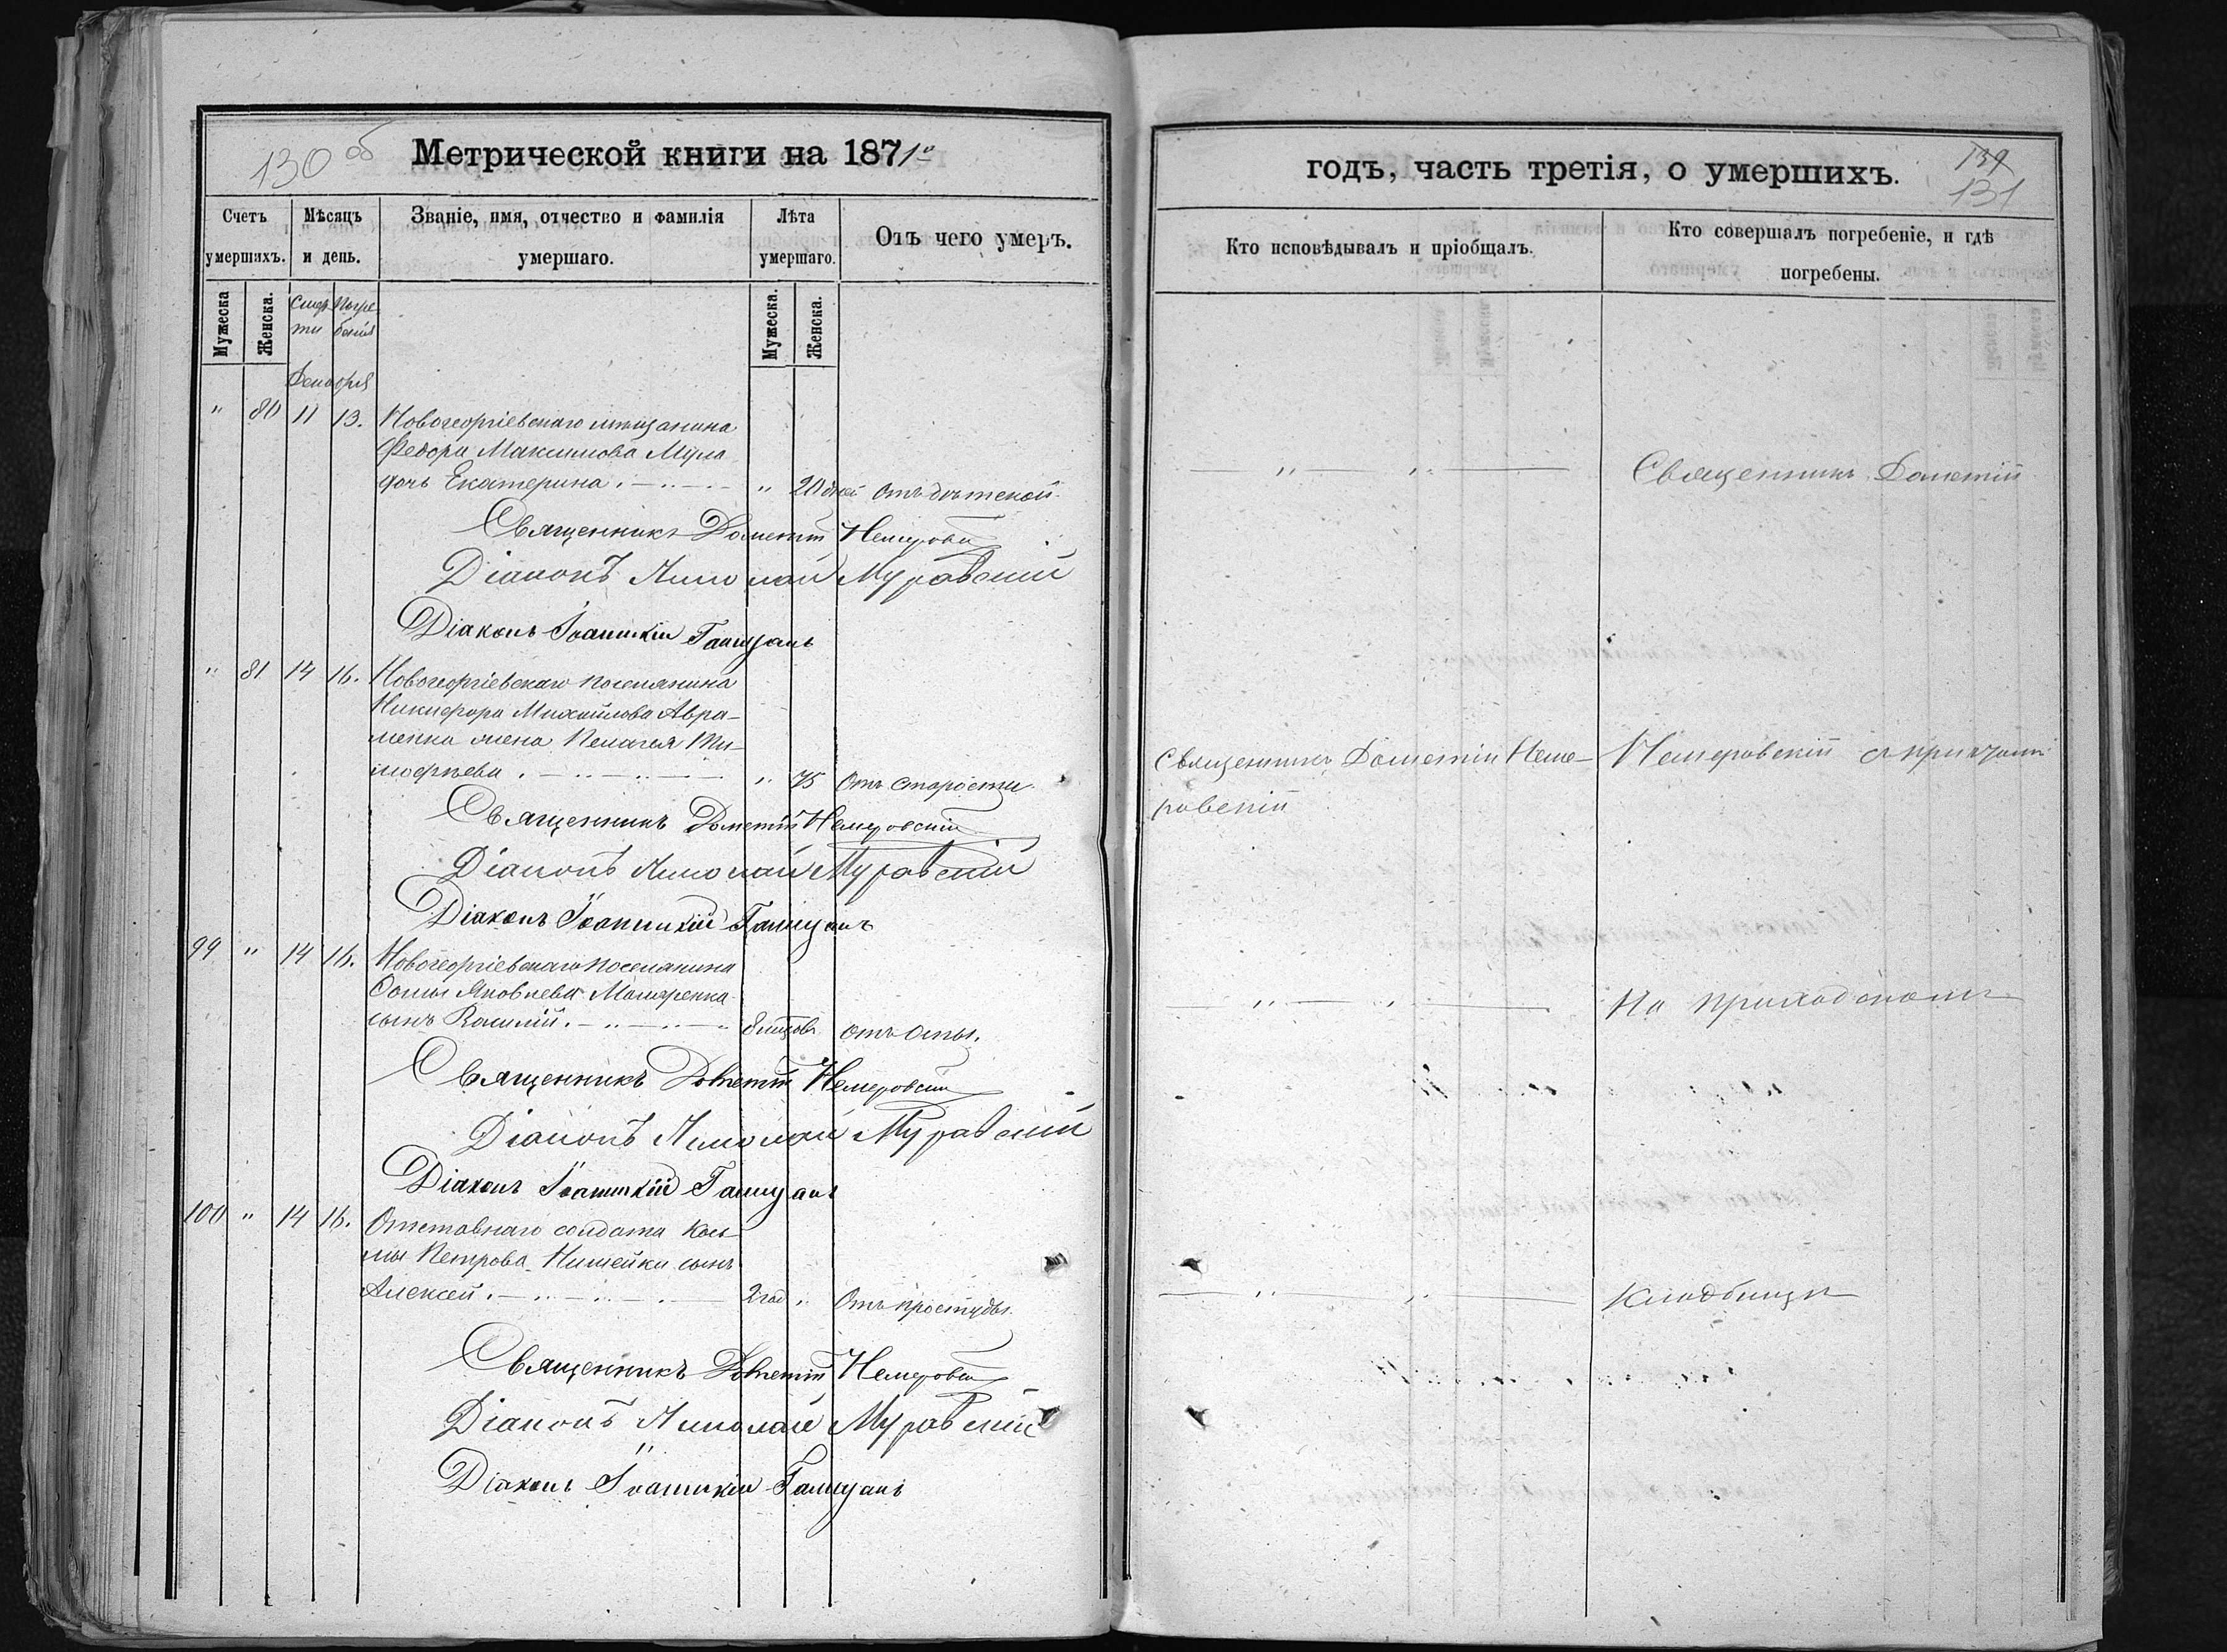 130 об
Метрической книги на 1871 го
Счетъ умершихъ.
Мѣсяцъ и день.
Званіе, имя, отчество и фамилія умершаго.
Лѣта умершаго.
Отъ чего умеръ.
Мужеска
Женска.
Смерти
Погребенія
Мужеска.
Женска.
Декабря
" 80 11 13. Новогеоргіевскаго мѣщанина
Федора Максимова
дочь Екатерина. " 20 дней отъ дѣтской
Священникъ Дометій Немеровскій
Діаконъ Николай Муравскій
Діаконъ Іоанникій
" 81 14 16. Новогеоргіевскаго поселянина
Никифора Михайлова Авра-
менка жена Пелагея Ти-
мофѣева. " 75 Отъ старости.
Священникъ Дометій Немеровскій
Діаконъ Николай Муравскій
Діаконъ Іоанникій
99 " 14 16. Новогеоргіевскаго поселянина
Фомы Яковлева
сынъ Василій. отъ оспы.
Священникъ Дометій Немеровскій
Діаконъ Николай Муравскій
Діаконъ Іоанникій
100 " 14 16. Отставнаго солдата Козь-
мы Петрова сынъ
Алексей. 2 год " Отъ простуды.
Священникъ Дометій Немеровскій
Діаконъ Николай Муравскій
Діаконъ Іоанникій
годъ, часть третія, о умершихъ.
131
Кто исповѣдывалъ и пріобщалъ.
Кто совершалъ погребеніе, и гдѣ погребены.
" " Священникъ Дометій
Священникъ Дометій Неме-
ровскій
Немеровскій съ причтомъ
" " На приходскомъ
" " Кладбищѣ